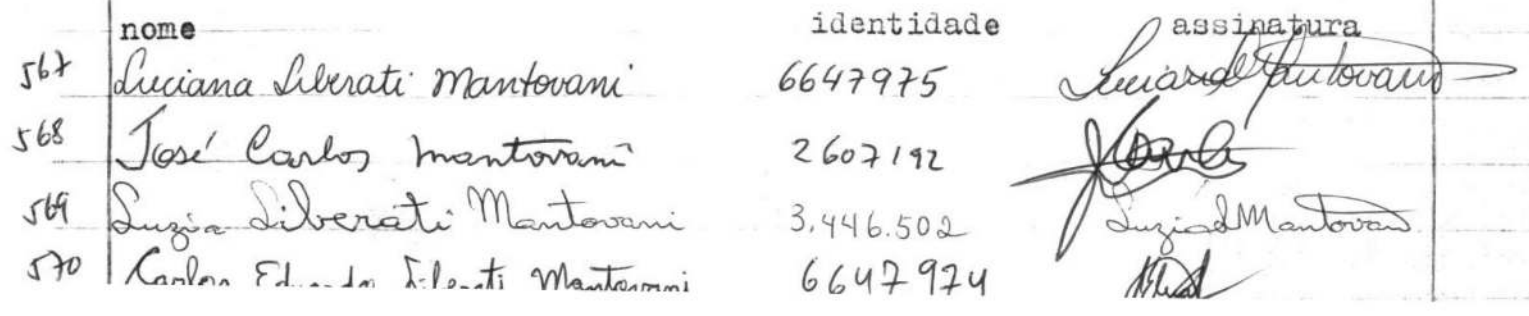 nome identidade assinatura
567 Luciana Liberati Mantovani 6647975 Luciana L Mantovani
568 José Carlos Mantovani 2607192
569 Luzia Liberati Mantovani 3.446.502 Luzia L Mantovani
570 Carlos Eduardo Liberati Mantovani 6647974